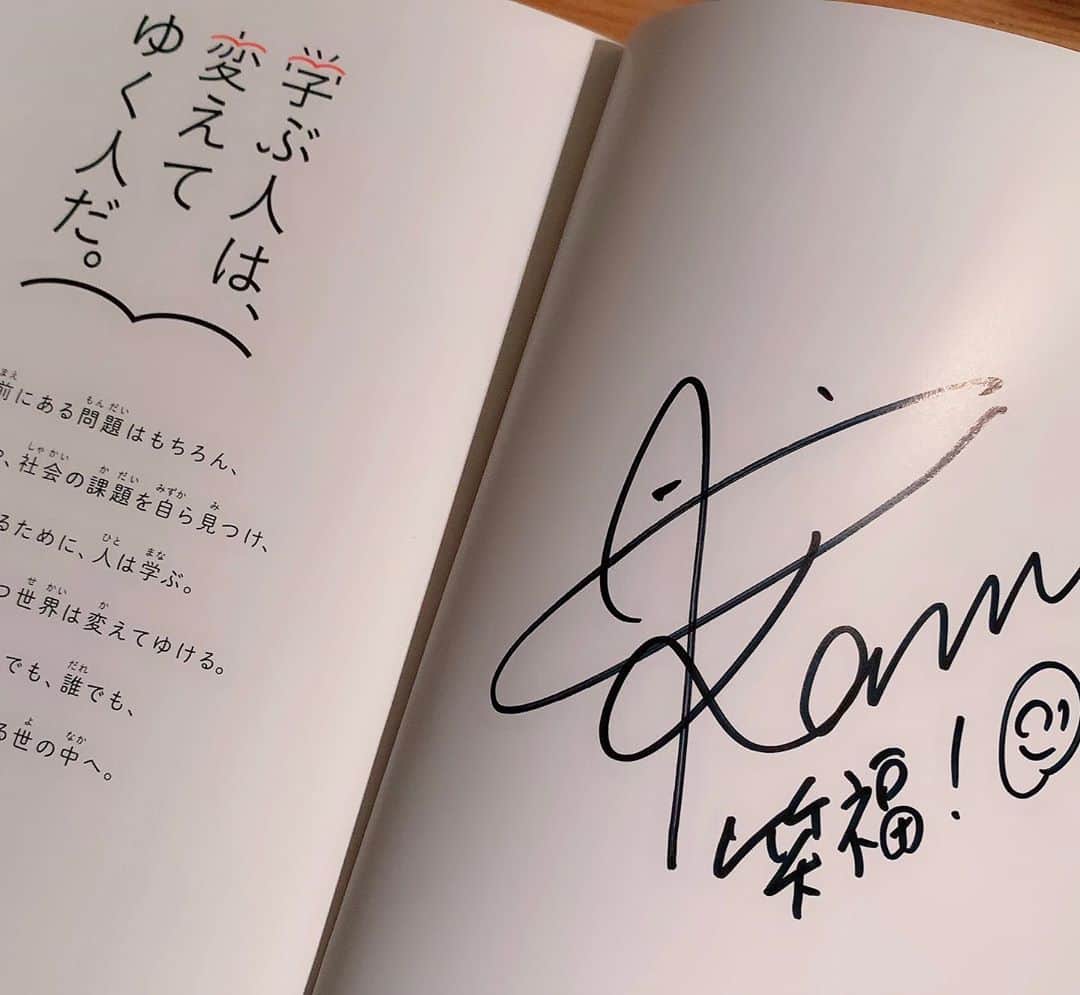 学ぶ人は、
変えて
ゆく人だ。
前にある問題はもちろん、
、社会の課題を自ら見つけ、
るために、人は学ぶ。
つ世界は変えてゆける。
でも、誰でも、
る世の中へ。
福!